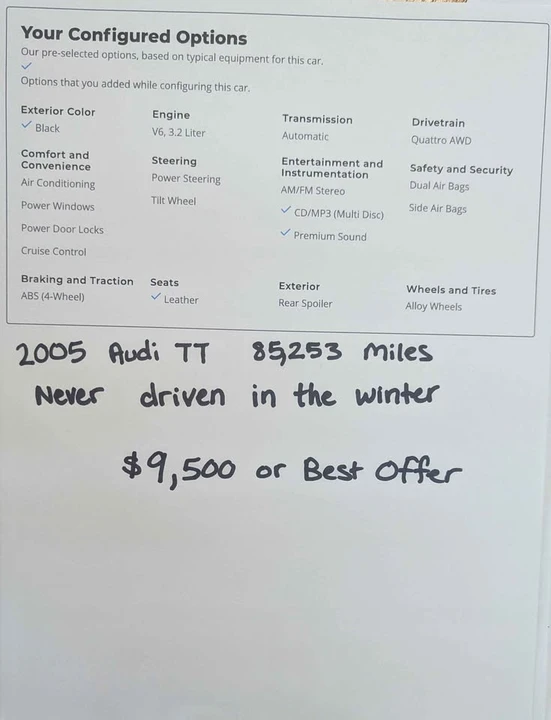 Your Configured Options
Our pre-selected options, based on typical equipment for this car.
✓
Options that you added while configuring this car.
Exterior Color
✓ Black
Engine
V6, 3.2 Liter
Transmission
Automatic
Drivetrain
Quattro AWD
Comfort and
Convenience
Air Conditioning
Power Windows
Power Door Locks
Cruise Control
Steering
Power Steering
Tilt Wheel
Entertainment and
Instrumentation
AM/FM Stereo
✓ CD/MP3 (Multi Disc)
✓ Premium Sound
Safety and Security
Dual Air Bags
Side Air Bags
Braking and Traction
ABS (4-Wheel)
Seats
✓ Leather
Exterior
Rear Spoiler
Wheels and Tires
Alloy Wheels
2005 Audi TT 85,253 miles
Never driven in the winter
$9,500 or Best Offer